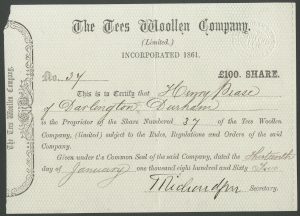 The Tees Woollen Company.
(Limited.)
INCORPORATED 1861.
No. 37
£100. SHARE.
This is to Certify that Henry Pease
of Darlington, Durham
is the Proprietor of the Share Numbered 37 of the Tees Woollen
Company, (limited) subject to the Rules, Regulations and Orders of the said
Company.
Given under the Common Seal of the said Company, dated the Thirteenth
day of January one thousand eight hundred and Sixty Five
Secretary.
The Tees Woollen Company.